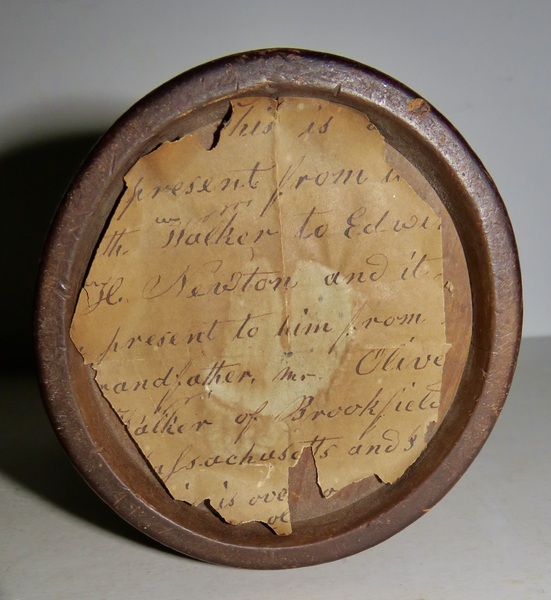 This is a
present from
th Walker to Edwi
H. Newton and it
present to him from
randfather. Mr. Olive
alker of Brookfield
assachusetts and
is ove